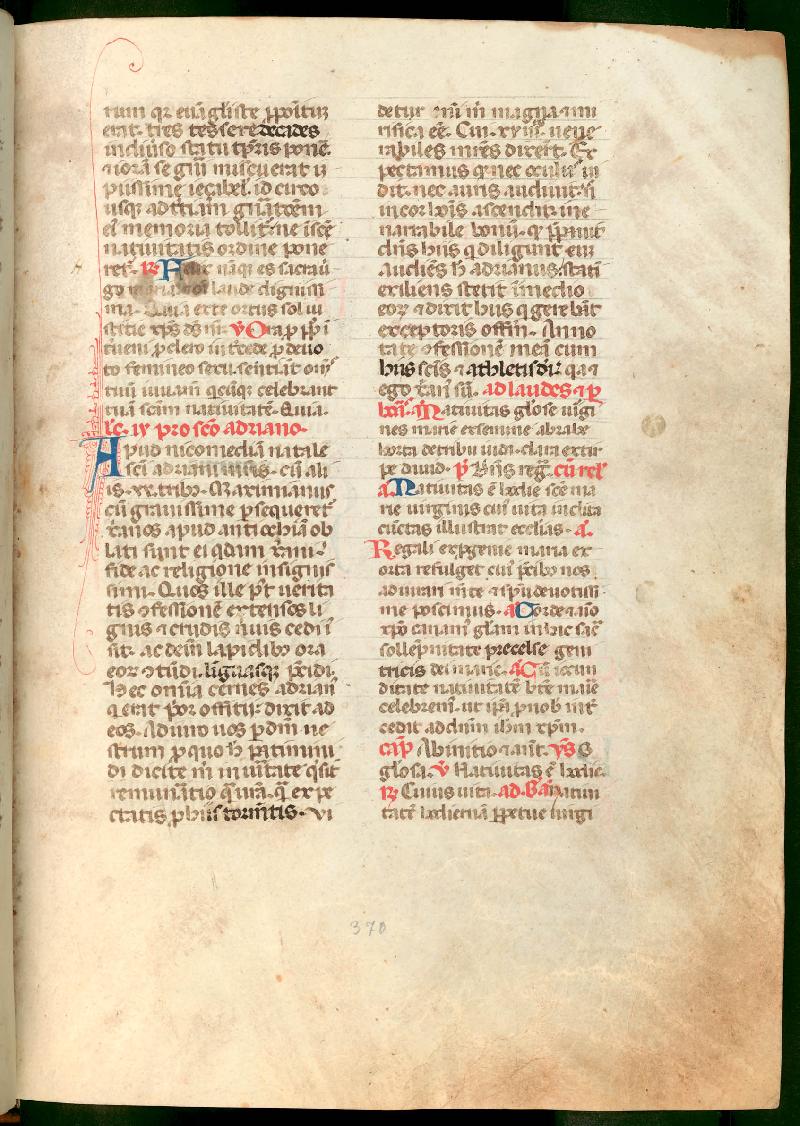 rum qr euāgliste ꝓpōitur
erat. tres tessere decides
indiuiso statu tꝑris pone.
⁊ iorā se gnīi miscuerat ii
piissime iezabel. id circo
usq; ad ttiam gnātōem
ei memoria tollit͛ ne ī scē
natiuitatis ordine pone
ret͛. R̷ Felix nāq; es sacra ū
go maria ⁊ oī laude dignissi
ma. Quia ex te ortus sol iu
sticie xp̄s ds̄ nr̄. v Ora ꝓ ppl̄o ī
tueni ꝓ clero intcede ꝓ deuo
to femineo sexu. sentiāt oms̄
tuū iuuam̄ qcūq; celebrant
tuā scām natiuitatē. Quia.
lc̄. ix pro sc̄o adriano.
Apud nicomediā natale
sc̄i adriani mr̄is. cū ali
is. xx. tribƺ. Maximianus
cū grauissime ꝑsequeret͛
xp̄ianos apud anthiochiā ob
lati sunt ei qdam xp̄iani
fide ac religione insignis
simi. Quos ille pꝰt uerita
tis ꝯfessionē extensos li
gnis ⁊ crudis neruis cedi i
sit. ac dem̄ lapidibꝫ ora
eor ꝯtūdi. linguasq; p̄cidi.
Hec omīa cernes adrianꝰ
q erat p̄or officii. dixit ad
eos. Adiuro uos ꝑ dm̄ ue
strum ꝓ quo h̄ patimini
di dicite m̄ in ūitate q̄ sit
remunātio q̄ uia. q̄ expe
ctatis ꝓ hiis tormētis. vi
detur eni m̄ in magna ⁊ mi
rifica eē. Cui. xxiii. uene
rabiles mr̄es dixert͛. Ex
pectimus q nec oculꝰ ui
dit. nec auris audiuit. n̄
in cor hoīs ascendit. ine
narrabile bonū. q p̄parauit
dn̄s hiis q diligunt eū.
Audiēs h̄ adrianus. stati
exiliens stetit in medio
eor ⁊ dixit hiis q gerebāt
exceptoris offm̄. Anno
tate ꝯfessionē meā cum
hiis sc̄is ⁊ athletis dī q̄a ⁊
ego xp̄ianꝰ sū. ad laudes ⁊ ꝑ
horā. an̄. Natiuitas gl̄ose uirgi
nes marie ex semine abrahe
horta de tribu iuda. clara ex stir
pe dauid. p̄ Dn̄s reg̅. cū rel̄
a. Natiuitas ē hodie scē ma
rie uirginis cui uita inclita
cūctas illustrat ecclīas. a.
Regali ex ꝓgenie maria ex
orta refulget cui p̄cibƺ nos
adiuuari mēte ⁊ spū deuotissi
me poscimus. a Corde ⁊ aīo
xp̄o canamꝰ gl̄am in hac sac̄
sollēpnitate precelse geni
tricis dei marie. a Cū iocun
ditate natiuitatē bt̄e marie
celebremꝰ. ut ipā ꝓ nob̄ int͛
cedat ad dn̄m ihm̄ xpm̄.
cap̄ Ab initio ⁊ an̄t. vs G
gl̄osa. v Natiuitas ē hodie.
R̷ Cuius uita. ad Bn̄. a Natiuita
tatē hodiernā ꝑpetue uirgi
370